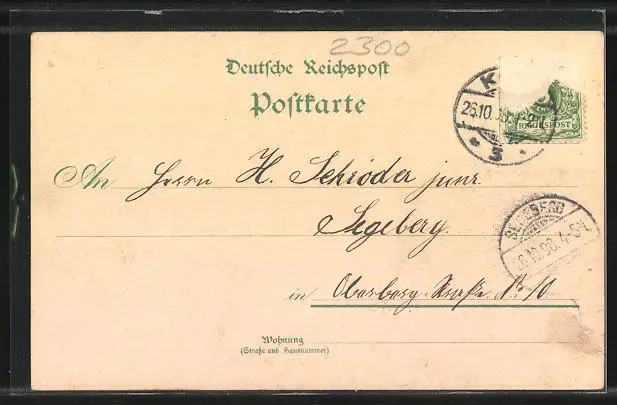 2300
Deutsche Reichspost
Postkarte
26.10.98
REICHSPOST
* 3 *
An Herrn H. Schröder junr.
Segeberg.
SEGEBERG
26.10.98. 4-5N
in Oberberg Straße N. 10
Wohnung
(Straße und Hausnummer)